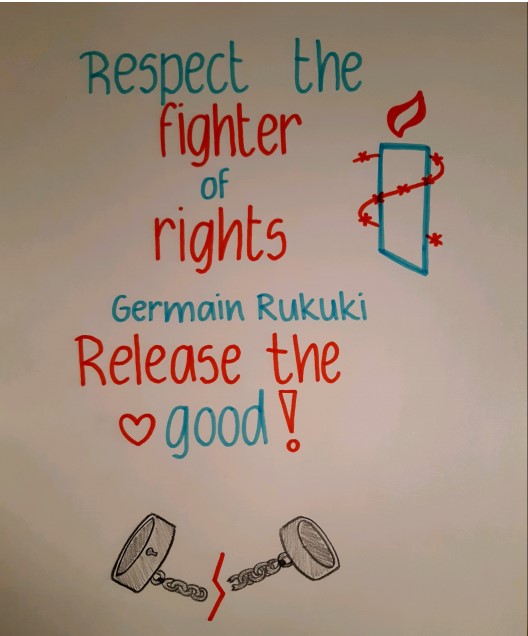 Respect the
fighter
of
rights
Germain Rukuki
Release the
good!